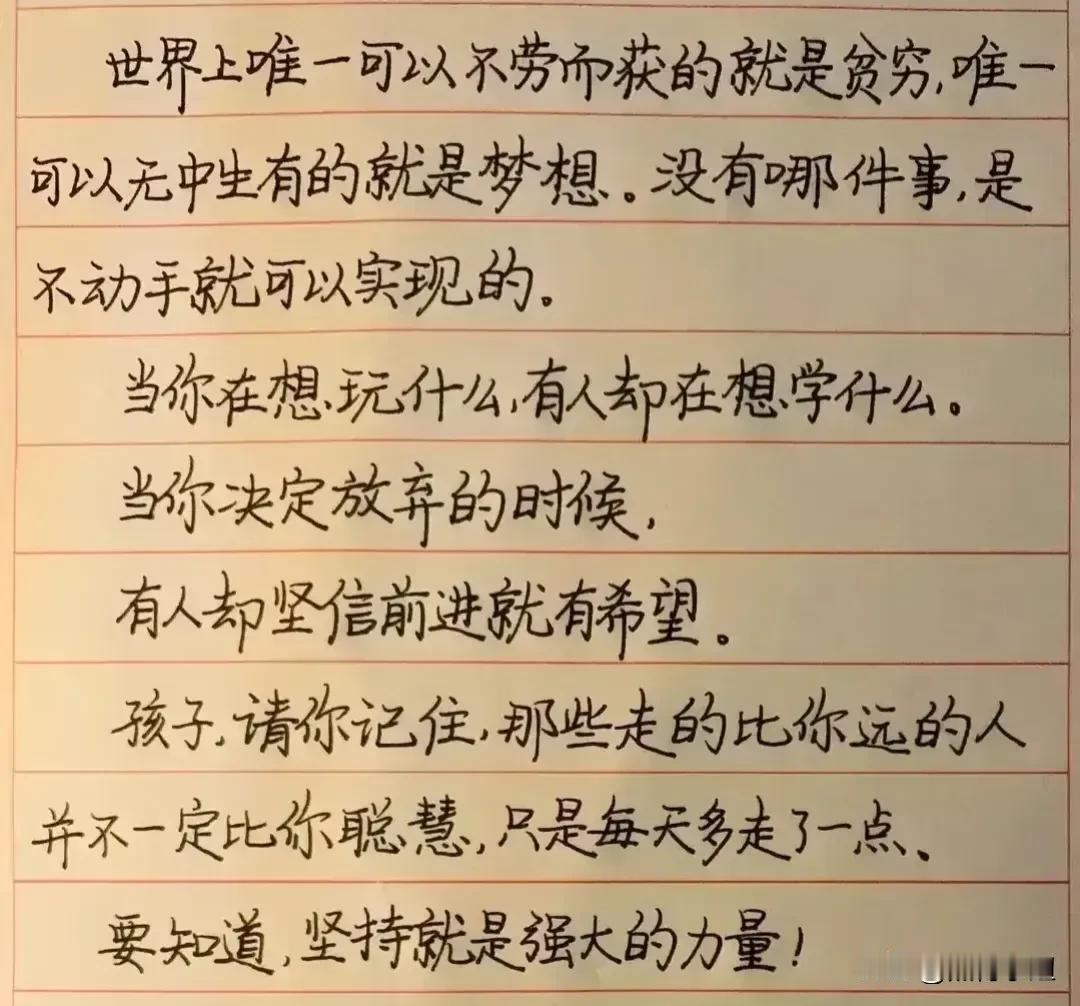 世界上唯一可以不劳而获的就是贫穷,唯一
可以无中生有的就是梦想。没有哪件事,是
不动手就可以实现的。
当你在想玩什么,有人却在想学什么。
当你决定放弃的时候,
有人却坚信前进就有希望。
孩子,请你记住,那些走的比你远的人
并不一定比你聪慧,只是每天多走了一点、
要知道,坚持就是强大的力量!